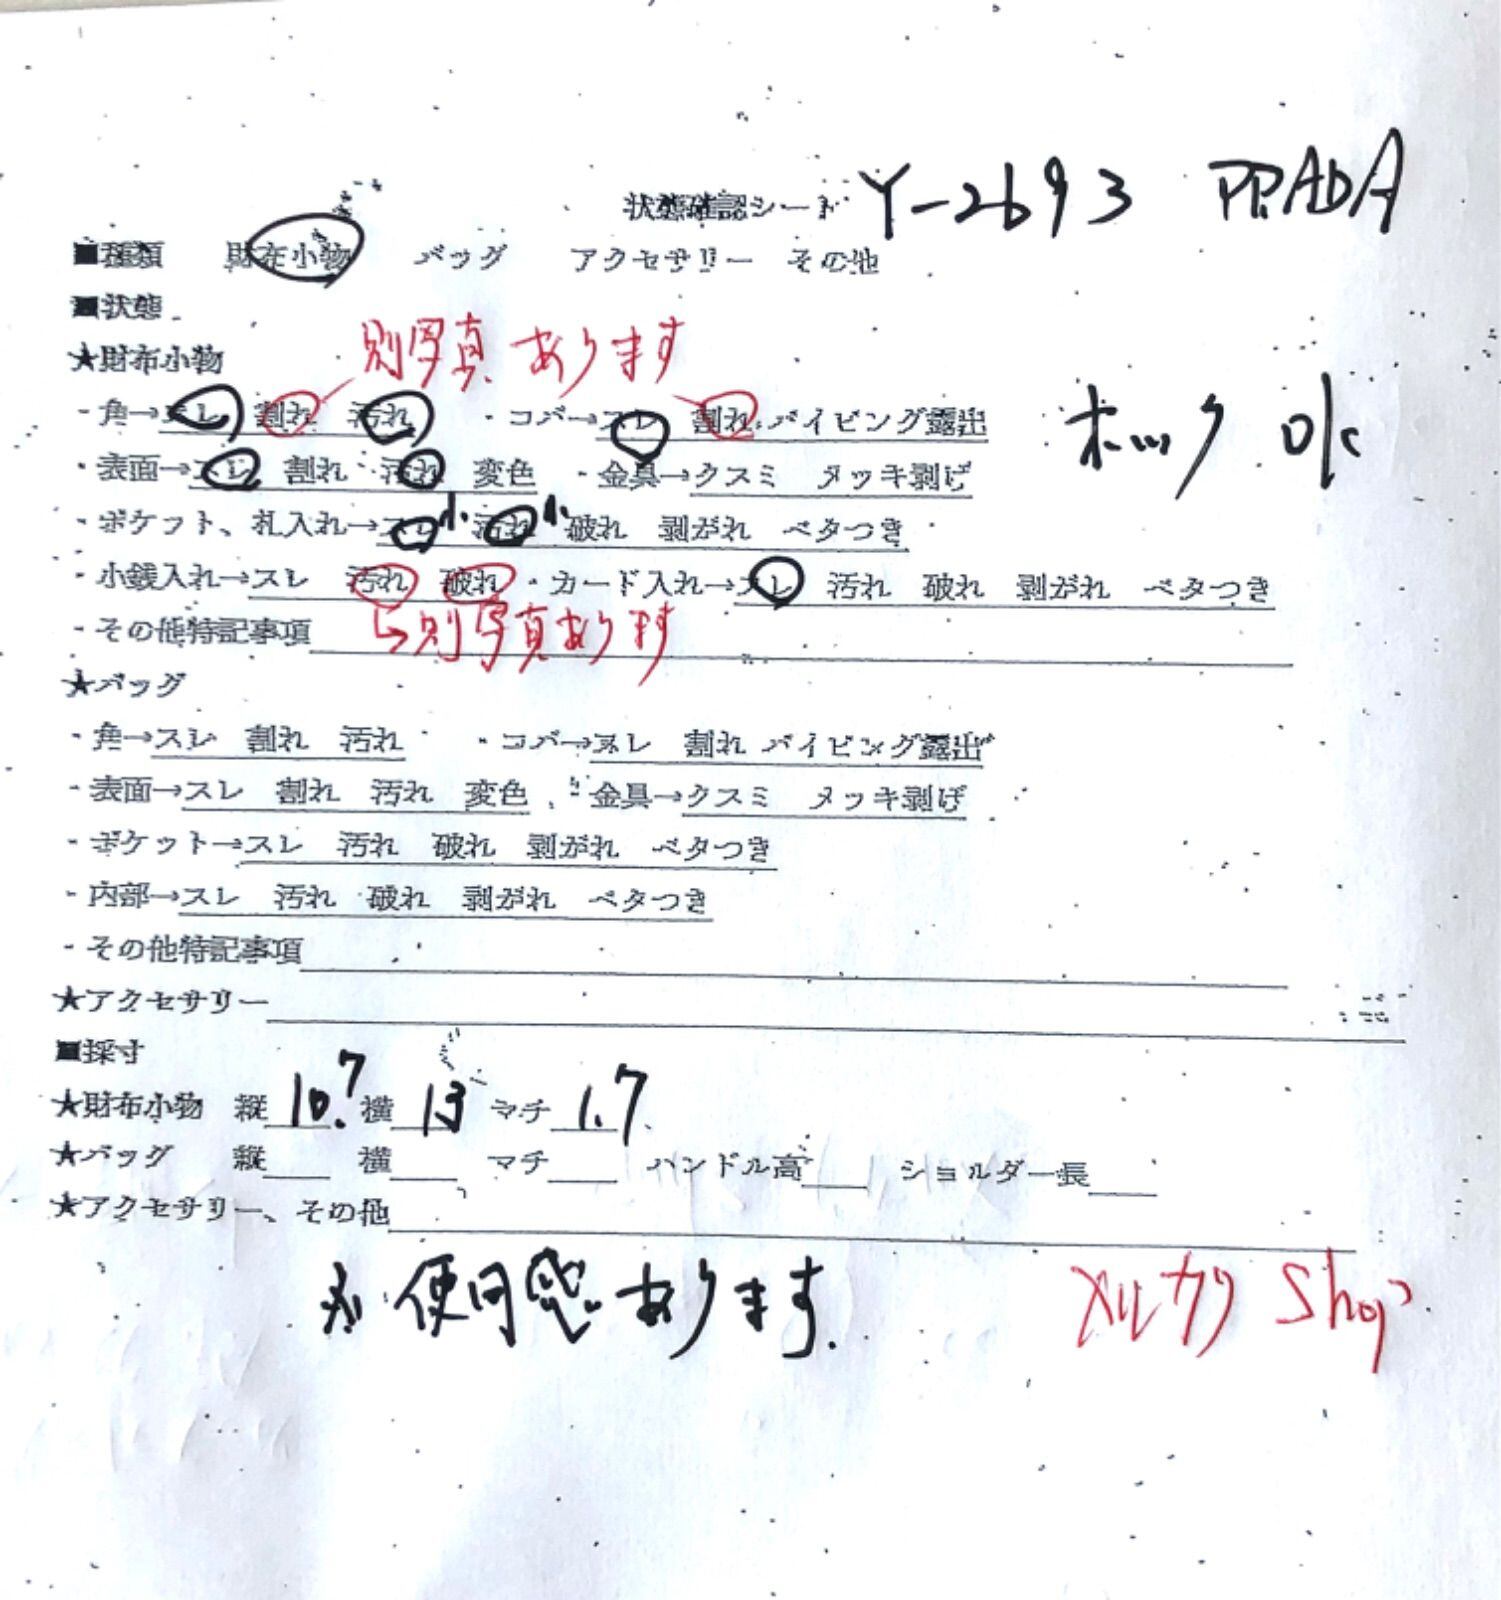 状態確認シート Y-2693 PRADA
■種類 財布小物 バッグ アクセサリー その他
■状態
別写真あります
★財布小物
・角→スレ 割れ 汚れ ・コバ→スレ 割れ パイピング露出
ホック OK
・表面→スレ 割れ 汚れ 変色 ・金具→クスミ メッキ剥げ
・ポケット、札入れ→スレ小 汚れ小 破れ 剥がれ ベタつき
・小銭入れ→スレ 汚れ 破れ ・カード入れ→スレ 汚れ 破れ 剥がれ ベタつき
・その他特記事項 ↳別写真あります
★バッグ
・角→スレ 割れ 汚れ ・コバ→スレ 割れ パイピング露出
・表面→スレ 割れ 汚れ 変色 ・金具→クスミ メッキ剥げ
・ポケット→スレ 汚れ 破れ 剥がれ ベタつき
・内部→スレ 汚れ 破れ 剥がれ ベタつき
・その他特記事項
★アクセサリー
■採寸
★財布小物 縦 10.7 横 13 マチ 1.7
★バッグ 縦 横 マチ ハンドル高 ショルダー長
★アクセサリー、その他
※使用感あります.
メルカリ Shop